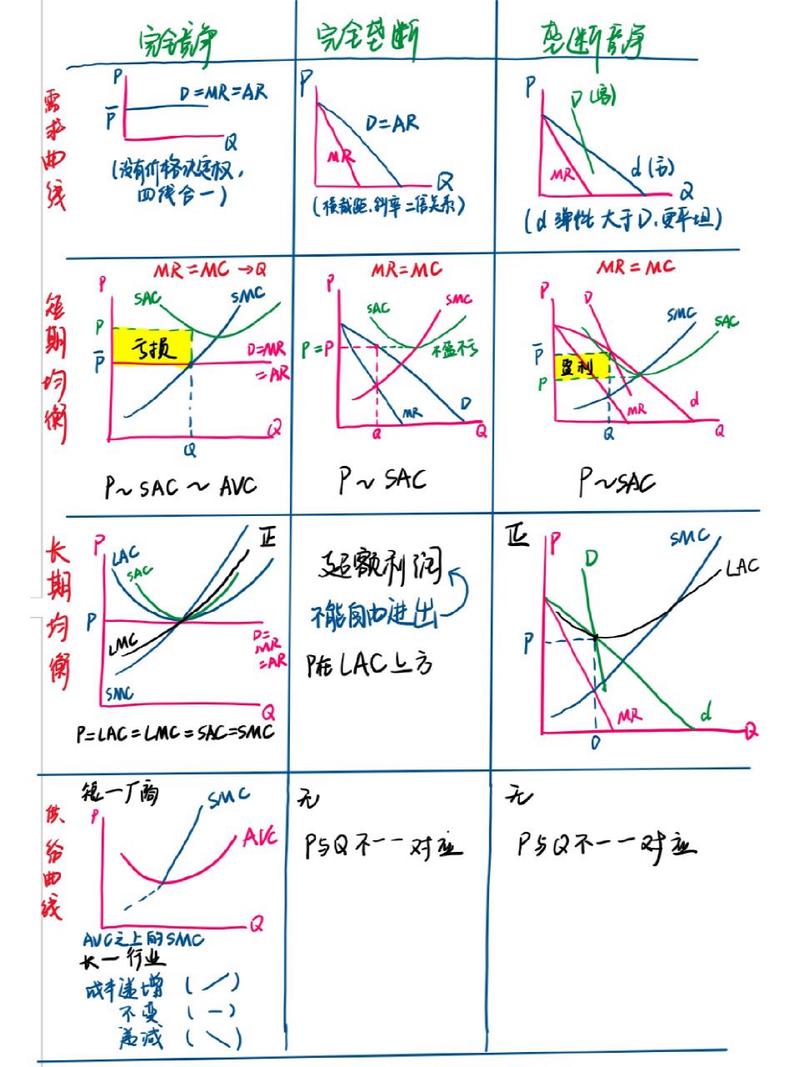 完全竞争
完全垄断
垄断竞争
需求曲线
P
P̅
D=MR=AR
Q
(没有价格决定权,
四线合一)
P
D=AR
MR
Q
(横截距、斜率二倍关系)
P
D
MR
d
Q
(d 弹性大于D,更平坦)
短期均衡
MR=MC→Q
P
SAC
SMC
P
亏损
P̅
D=MR
=AR
Q
Q
P~SAC~AVC
MR=MC
P
SAC
SMC
P=P
不盈不亏
MR
D
Q
Q
P~SAC
MR=MC
P
D
SMC
SAC
P̅
盈利
P
MR
d
Q
Q
P~SAC
长期均衡
P
LAC
SAC
正
P
LMC
D=
MR
=AR
SMC
Q
P=LAC=LMC=SAC=SMC
超额利润
不能自由进出
P在LAC上方
正
P
D
SMC
LAC
P
MR
d
Q
Q
供给曲线
短一厂商
P
SMC
AVC
Q
AVC之上的SMC
长一行业
成本递增 (／)
不变 (—)
递减 (＼)
无
P与Q不一一对应
无
P与Q不一一对应